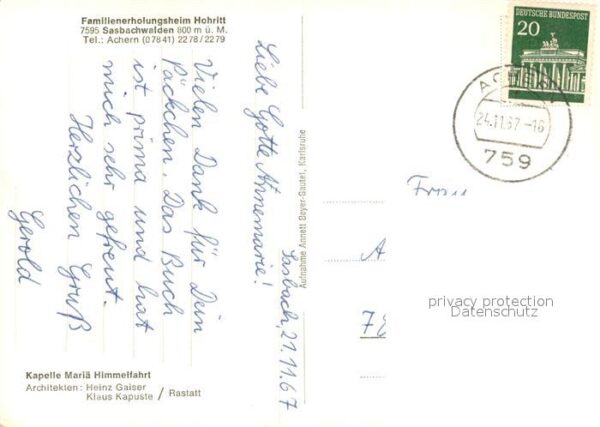 Familienerholungsheim Hohritt
7595 Sasbachwalden 800 m ü. M.
Tel.: Achern (07841) 2278/2279
Sasbach, 21.11.67
Liebe Gotte Annemarie!
Vielen Dank für Dein
Päckchen. Das Buch
ist prima und hat
mich sehr gefreut.
Herzlichen Gruß
Gerold
Kapelle Mariä Himmelfahrt
Architekten: Heinz Gaiser
Klaus Kapuste / Rastatt
Aufnahme Annett Beyer-Sautet, Karlsruhe
DEUTSCHE BUNDESPOST
20
24.11.67-16
759
Frau
A
7
privacy protection
Datenschutz